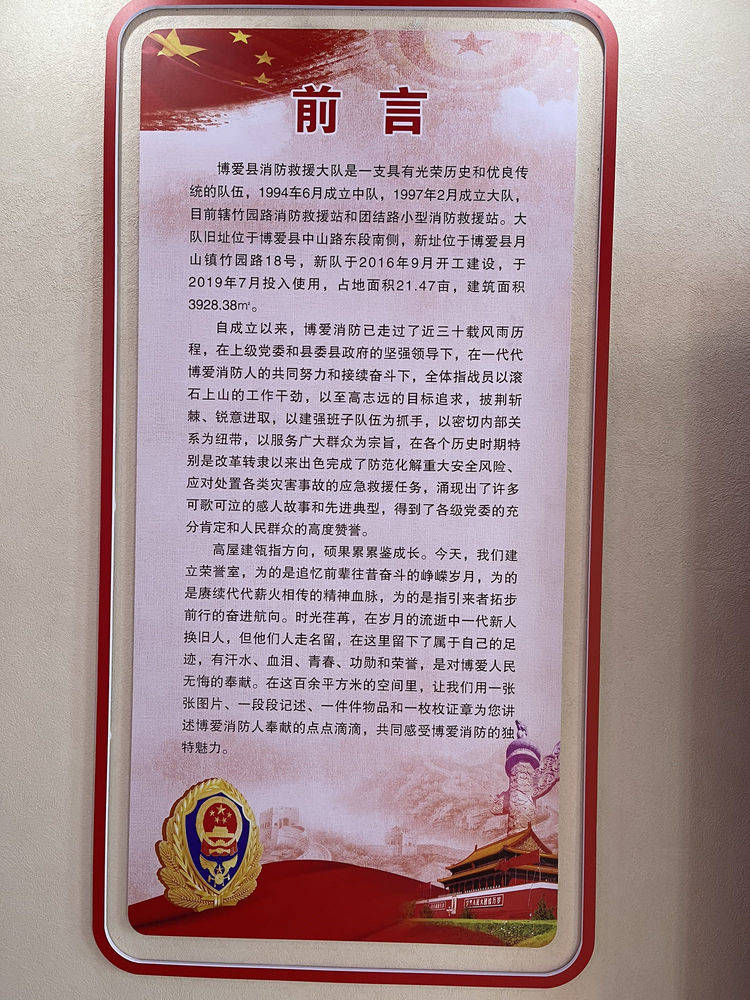 前言
博爱县消防救援大队是一支具有光荣历史和优良传
统的队伍，1994车6月成立中队，1997年2月成立大队，
目前辖竹园路消防救援站和团结路小型消防救援站。大
队旧址位于博爱县中山路东段南侧，新址位于博爱县月
山镇竹园路18号，新队于2016年9月开工建设，于
2019年7月投入使用，占地面积21.47亩，建筑面积
3928.38㎡。
自成立以来，博爱消防已走过了近三十载风雨历
程，在上级党委和县委县政府的坚强领导下，在一代代
博爱消防人的共同努力和接续奋斗下，全体指战员以滚
石上山的工作干劲，以至高志远的目标追求，披荆斩
棘、锐意进取，以建强班子队伍为抓手，以密切内部关
系为纽带，以服务广大群众为宗旨，在各个历史时期特
别是改革转隶以来出色完成了防范化解重大安全风险、
应对处置各类灾害事故的应急救援任务，涌现出了许多
可歌可泣的感人故事和先进典型，得到了各级党委的充
分肯定和人民群众的高度赞誉。
高屋建瓴指方向，硕果累累鉴成长。今天，我们建
立荣誉室，为的是追忆前辈往昔奋斗的峥嵘岁月，为的
是赓续代代薪火相传的精神血脉，为的是指引来者拓步
前行的奋进航向。时光荏苒，在岁月的流逝中一代新人
换旧人，但他们人走名留，在这里留下了属于自己的足
迹，有汗水、血泪、青春、功勋和荣誉，是对博爱人民
无悔的奉献。在这百余平方米的空间里，让我们用一张
张图片、一段段记述、一件件物品和一枚枚证章为您讲
述博爱消防人奉献的点点滴滴，共同感受博爱消防的独
特魅力。